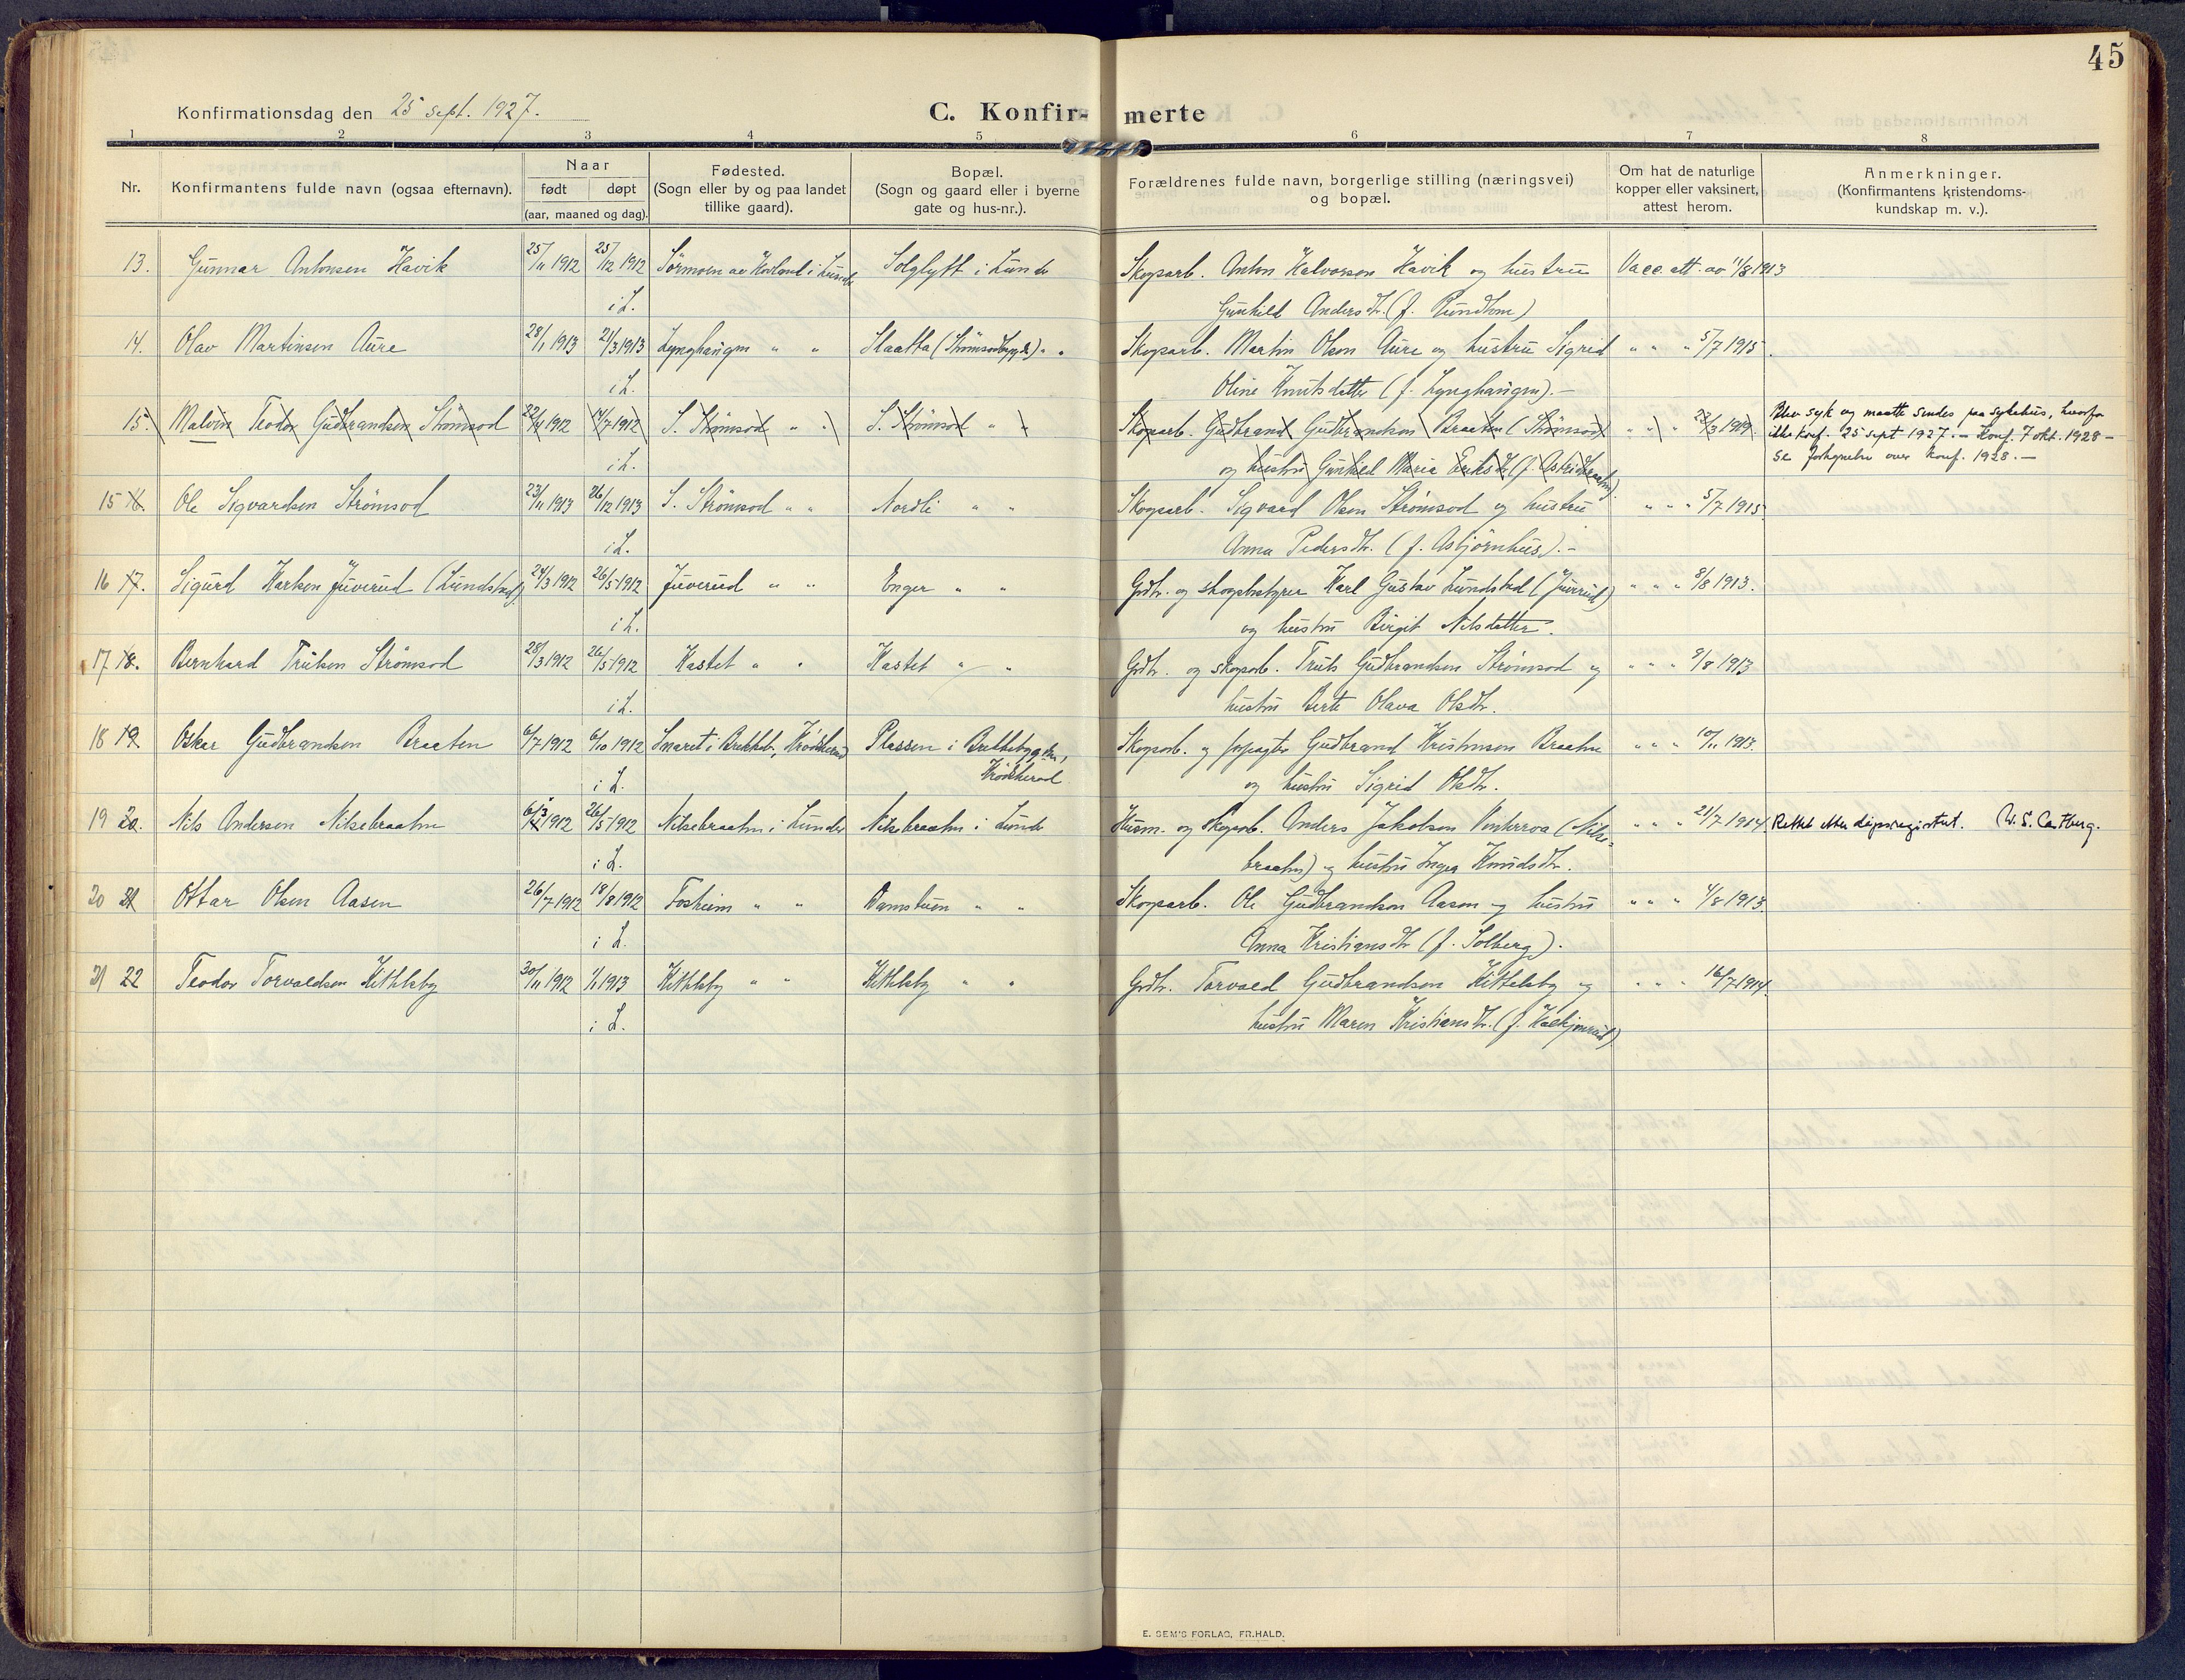 45
Konfirmationsdag den 25 sept. 1927.
C. Konfir- merte
1 2 3 4 5 6 7 8
Nr.
Konfirmantens fulde navn (ogsaa efternavn).
Naar
født døpt
(aar, maaned og dag).
Fødested.
(Sogn eller by og paa landet
tillike gaard).
Bopæl.
(Sogn og gaard eller i byerne
gate og hus-nr.).
Forældrenes fulde navn, borgerlige stilling (næringsvei)
og bopæl.
Om hat de naturlige
kopper eller vaksinert,
attest herom.
Anmerkninger.
(Konfirmantens kristendoms-
kundskap m. v.).
13. Gunnar Antonsen Havik 25/11 1912 25/12 1912 Sørmoen av i Lunder Solglytt i Lunder Skogsarb. Anton Halvorsen Havik og hustru Vacc. att. av 11/8 1913
i L. Gunhild Andersdtr. (f. Rundtom)
14. Olav Martinsen Aure 28/1 1913 21/3 1913 Lynghaugen " " Slaatta (Strømsodbygda) " " Skogsarb. Martin Olsen Aure og hustru Sigrid " " " 5/7 1915.
i L. Oline Knutsdatter (f. Lynghaugen). –
15. Malvin Teodor Gudbrandsen Strømsod 22/4 1912 14/7 1912 S. Strømsod " " S. Strømsod " " Skogsarb. Gudbrand Gudbrandsen Braaten (Strømsod) " " " 23/3 1914 Blev syk og maatte sendes paa sykehus, hvorfor
ikke konf. 25 sept 1927. – Konf. 7 okt. 1928 –
i L. og hustru Gunhild Maria Eriksdtr. (f. Astridbraaten) se fortegnelse over konf. 1928. –
15 16. Ole Sigvardsen Strømsod 23/11 1913 26/12 1913 S. Strømsod " " Nordli " " Skogsarb. Sigvard Olsen Strømsod og hustru " " " 5/7 1915
i L. Anna Pedersdtr. (f. Asbjørnhus). –
16 17. Sigurd Karlsen Juverud (Lundstad) 24/3 1912 26/5 1912 Juverud " " Enger " " Grdbr. og skogbestyrer Karl Gustav Lundstad (Juverud) " " " 8/8 1913.
i L. og hustru Birgit Nilsdatter.
17 18. Bernhard Trulsen Strømsod 28/3 1912 26/5 1912 Hastet " " Hastet " " Grdbr. og skogsarb. Truls Gudbrandsen Strømsod og " " " 8/8 1913
i L. hustru Berte Olava Olsdtr.
18 19. Oskar Gudbrandsen Braaten 6/7 1912 6/10 1912 Snaret i Brekkeb., Krødsherad Plassen i Brekkebygden, Skogsarb. og forpagter Gudbrand Kristensen Braaten " " " 10/11 1913.
i L. Krødsherad og hustru Sigrid Olsdtr.
19 20. Nils Andersen Nilsebraaten 6/3 1912 26/5 1912 Nilsebraaten i Lunder Nilsebraaten i Lunder Husm. og skogsarb. Anders Jakobsen (Nilse- " " " 21/7 1914 Rettet etter dåpsregistret. W. S. Castberg.
i L. braaten) og hustru Inga Knudsdtr.
20 21 Ottar Olsen Aasen 26/7 1912 18/8 1912 Foskeim " " Damstuen " " Skogsarb. Ole Gudbrandsen Aasen og hustru " " " 4/8 1913.
i L. Anna Kristiansdtr (f. Solberg).
21 22 Teodor Torvaldsen Kittelsby 30/11 1912 1/1 1913 Kittelsby " " Kittelsby " " Grdbr. Torvald Gudbrandsen Kittelsby og " " " 16/7 1914.
i L. hustru Maren Kristiansdtr.
E. SEM'S FORLAG, FR.HALD.